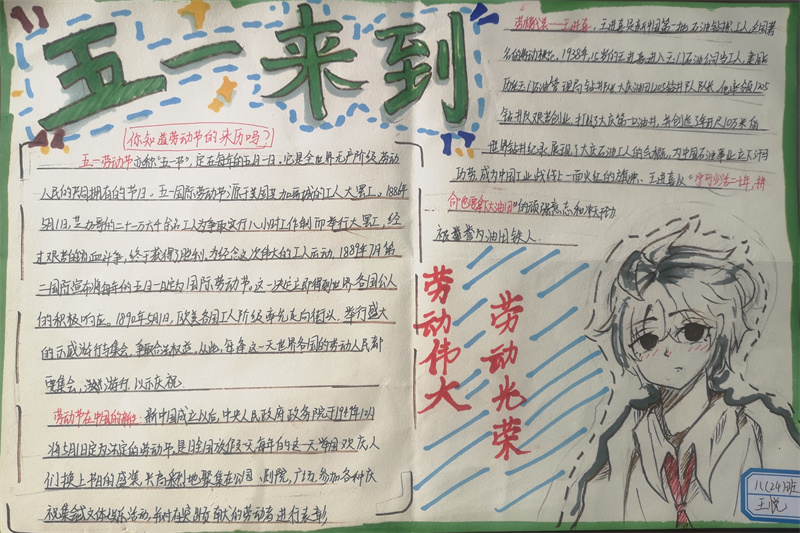 五一来到
你知道劳动节的来历吗?
五一劳动节亦称"五一节",定在每年的五月一日,它是全世界无产阶级、劳动
人民的共同拥有的节日。五一国际劳动节源于美国芝加哥城的工人大罢工,1886年
5月1日,芝加哥的二十一万六千余名工人为争取实行八小时工作制而举行大罢工,经
过艰苦的流血斗争,终于获得了胜利,为纪念这次伟大的工人运动,1889年7月第
二国际宣布将每年的五月一日定为国际劳动节,这一决定立即得到世界各国工人
的积极响应。1890年5月1日,欧美各国工人阶级率先走向街头,举行盛大
的示威游行与集会,争取合法权益,从此,每年这一天世界各国的劳动人民都
要集会,游行,以示庆祝.
劳动节在中国的
新中国成立以后,中央人民政府政务院于1949年12月
将5月1日定为法定的劳动节,是日全国放假一天每年的这一天,举国欢庆,人
们换上节日的盛装,兴高采烈地聚集在公园、剧院,广场,参加各种庆
祝集会或文体娱乐活动,并对有突出贡献的劳动者进行表彰
王进喜,王进喜是新中国第一批石油钻探工人,全国著
名的劳动模范,1938年,15岁的王进喜进入玉门石油公司当工人,
玉门石油管理局钻井队长大庆油田1205钻井队队长,他率领1205
钻井队艰苦创业,打出了大庆第一口油井,并创造了年进尺10万米的
世界钻井纪录,展现了大庆石油工人的气概,为中国石油事业立下了汗
马功劳,成为中国工业战线上一面火红的旗帜、王进喜以"宁可少活二十年,拼
命也要拿下大油田"的顽强意志和
被誉为油田铁人.
劳动伟大
劳动光荣
11(24)班
王悦